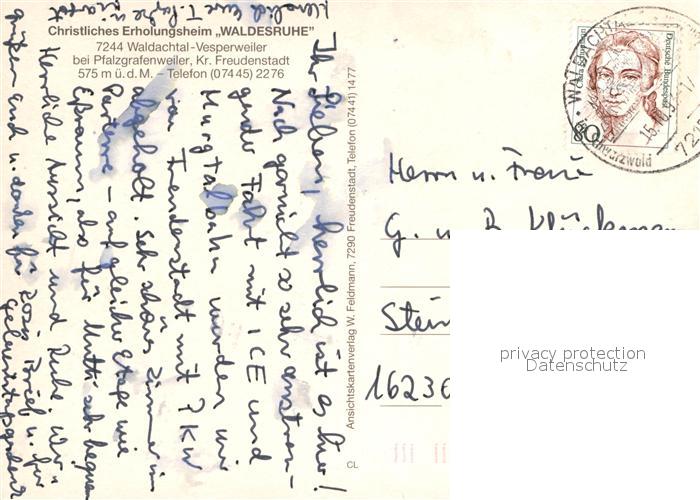 Christliches Erholungsheim „WALDESRUHE"
7244 Waldachtal-Vesperweiler
bei Pfalzgrafenweiler, Kr. Freudenstadt
575 m ü. d. M. – Telefon (07445) 2276
Ihr Lieben, herrlich ist es hier!
Nach gar nicht so sehr anstren-
gender Fahrt mit ICE und
Murgtalbahn wurden wir
von Freudenstadt mit PKW
abgeholt. Sehr schönes Zimmer im
Parterre – auf gleicher Etage wie
Eßraum, also für Mutti sehr bequem
Herrliche Aussicht und Ruhe. Wir
grüßen Euch u. danken für Brief u. für
Herzlich eure
Ansichtskartenverlag W. Feldmann, 7290 Freudenstadt, Telefon (07441) 1477
CL
Deutsche Bundespost
Clara Schumann
80
WALDACHTAL
Schwarzwald
Herrn u. Frau
G. u. B.
Stein
16230
privacy protection
Datenschutz